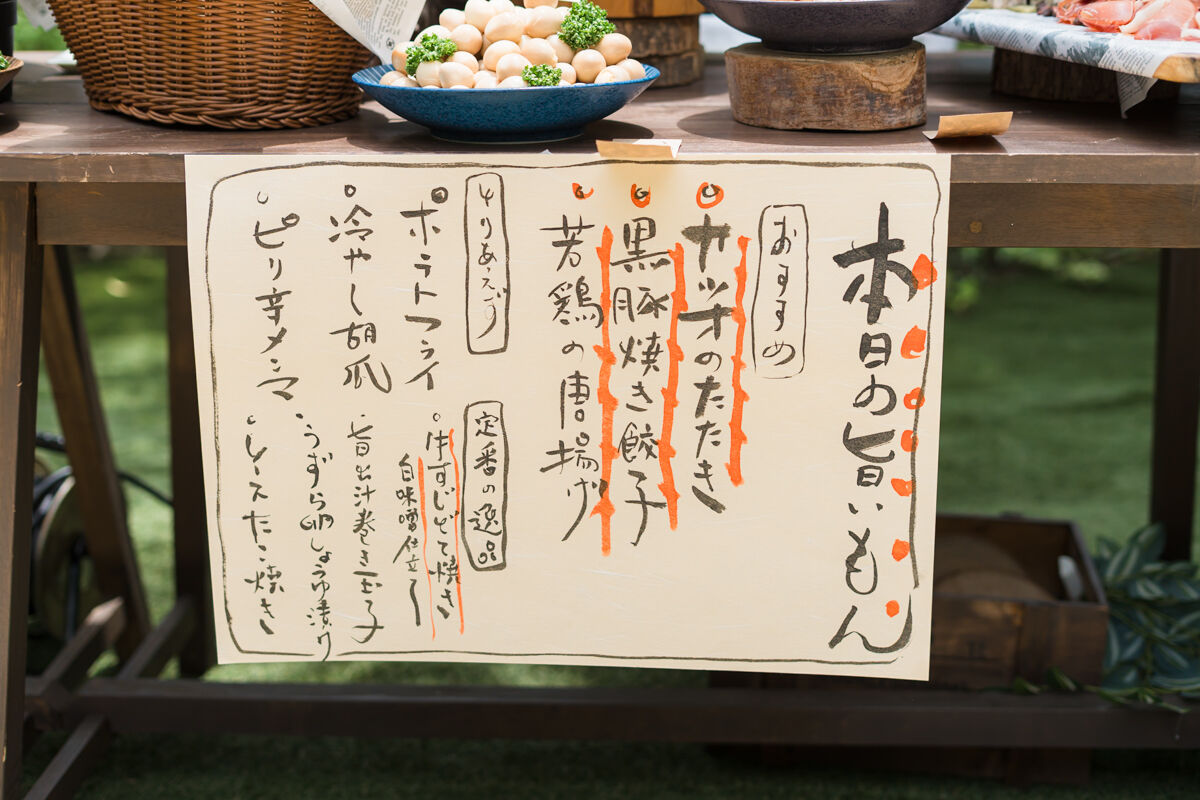 本日の旨いもん
おすすめ
カツオのたたき
黒豚焼き餃子
若鶏の唐揚げ
とりあえず
ポテトフライ
冷やし胡瓜
ピリ辛メンマ
定番の逸品
牛すじどて焼き
白味噌仕立て
旨出汁巻き玉子
うずら卵しょうゆ漬け
ソースたこ焼き